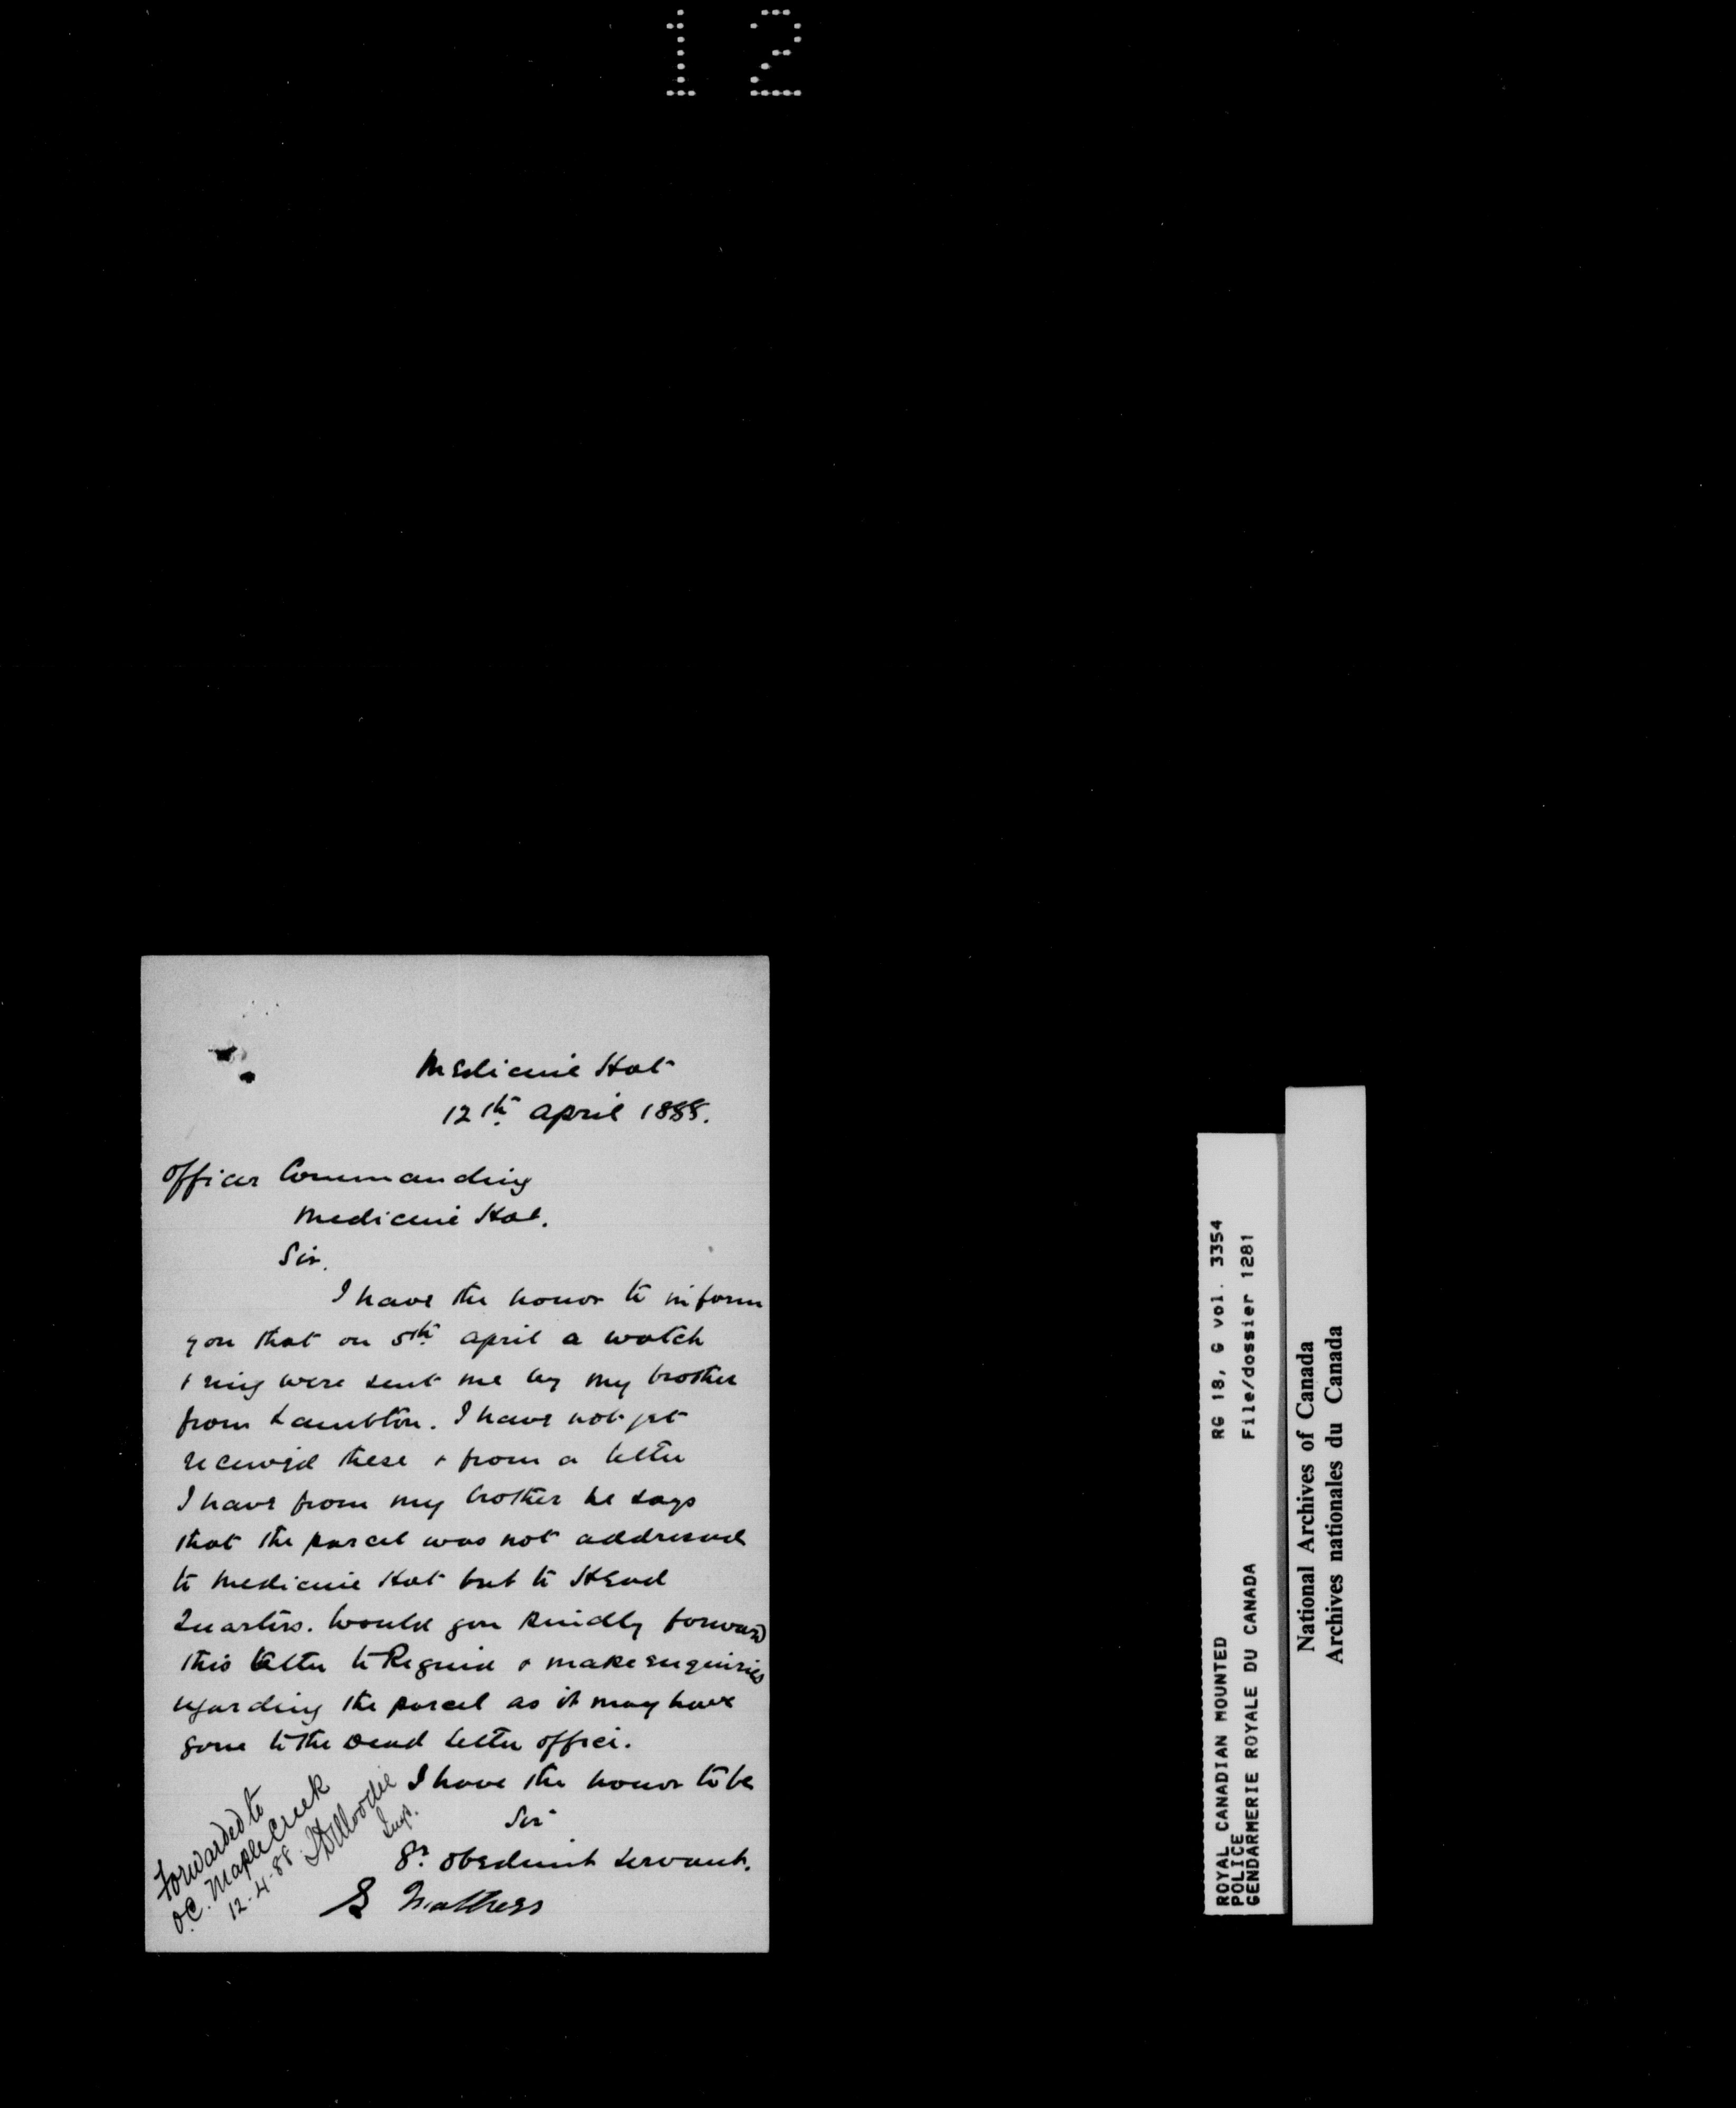 12
Medicine Hat
12th April 1888.
Officer Commanding
Medicine Hat.
Sir.
I have the honor to inform
you that on 5th April a watch
& ring were sent me by my brother
from Lambton. I have not yet
received these & from a letter
I have from my brother he says
that the parcel was not addressed
to Medicine Hat but to Head
Quarters. Would you kindly forward
this letter to Regina & make enquiries
regarding the parcel as it may have
gone to the Dead Letter office.
I have the honor to be
Sir
Yr obedient servant.
S Mathess
Forwarded to
O.C. Maple Creek
12-4-88. JDMoodie
Insp.
ROYAL CANADIAN MOUNTED RG 18, G vol. 3354
POLICE
GENDARMERIE ROYALE DU CANADA File/dossier 1281
National Archives of Canada
Archives nationales du Canada